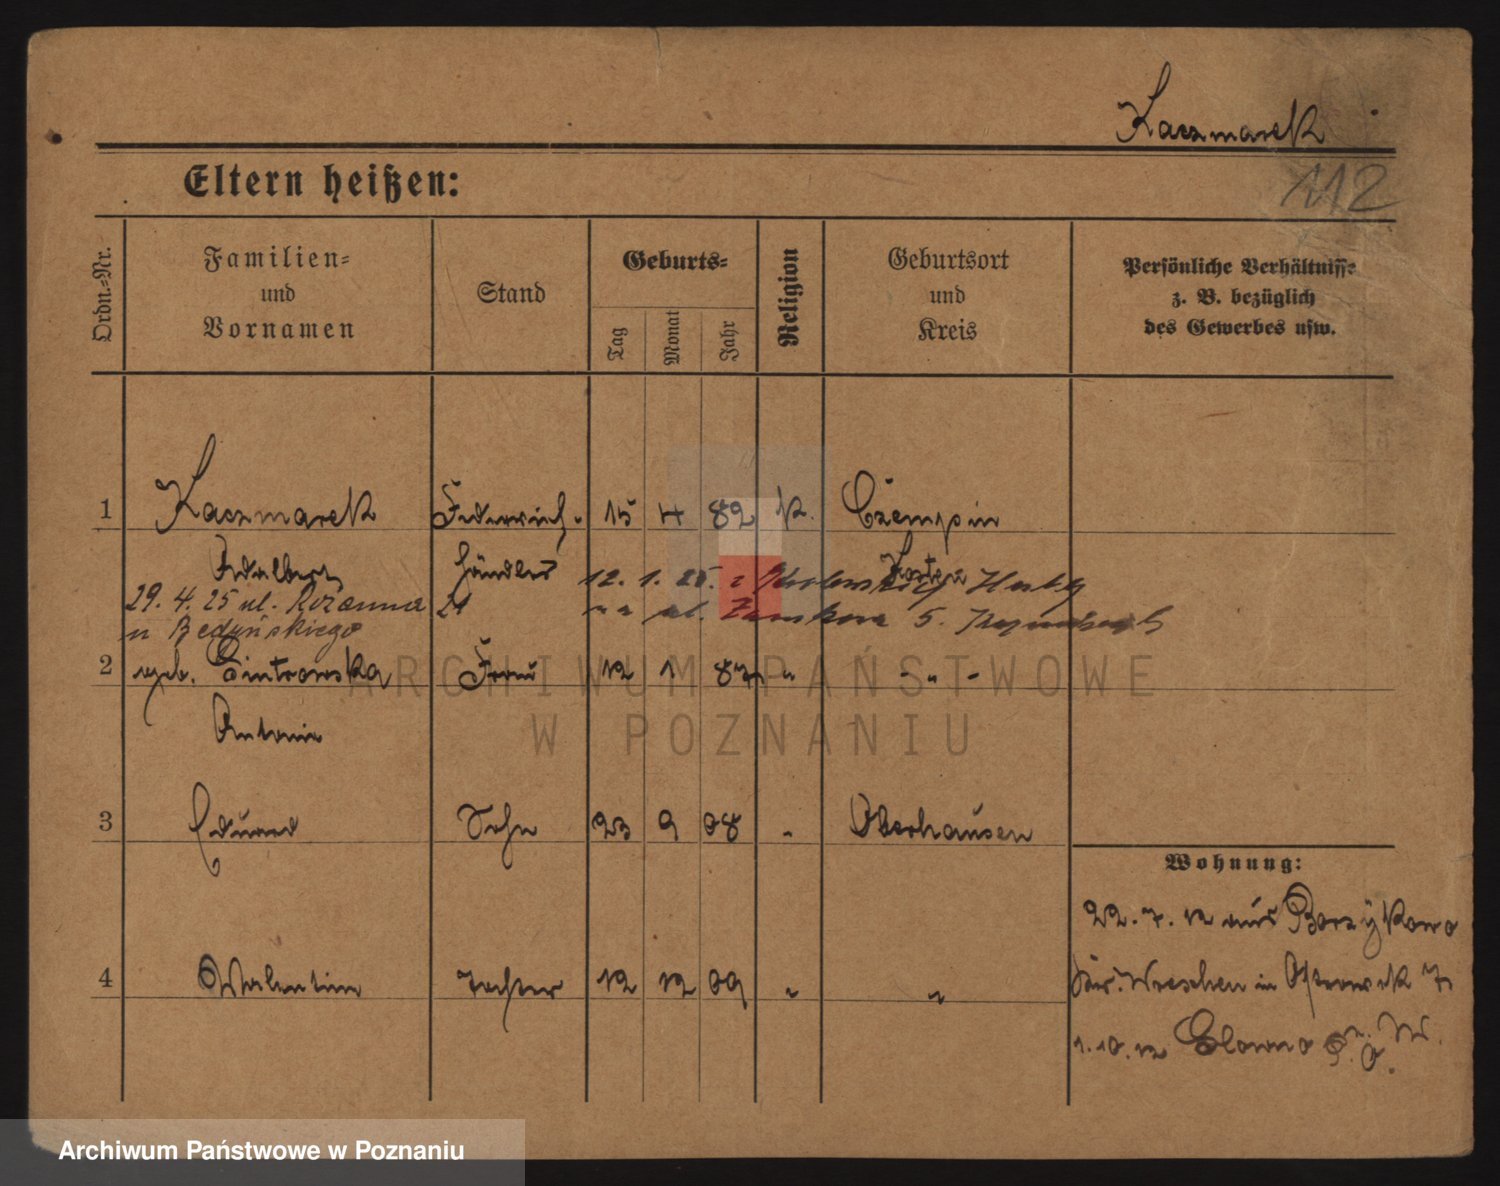 Kaczmarek
112
Eltern heißen:
Ordn.-Nr.
Familien-
und
Vornamen
Stand
Geburts-
Tag
Monat
Jahr
Religion
Geburtsort
und
Kreis
Persönliche Verhältnisse
z. B. bezüglich
des Gewerbes usw.
1 Kaczmarek 15 4 82 k. Czempin
Adalbert händler Kosten
29. 4. 25 ul. Różanna 21 12. 1. 25.
u Bedyńskiego ul. 5.
2 geb. Frau 12 1 87 " - " -
Antonie
3 Eduard Sohn 23 9 08 " Oberhausen
Wohnung:
22. 7. 12 aus Borzykowo
4 Walentine Tochter 12 12 09 " "
Kr. Wreschen in Ostrowek 7
1. 10. 12 Glowno
ARCHIWUM PAŃSTWOWE
W POZNANIU
Archiwum Państwowe w Poznaniu